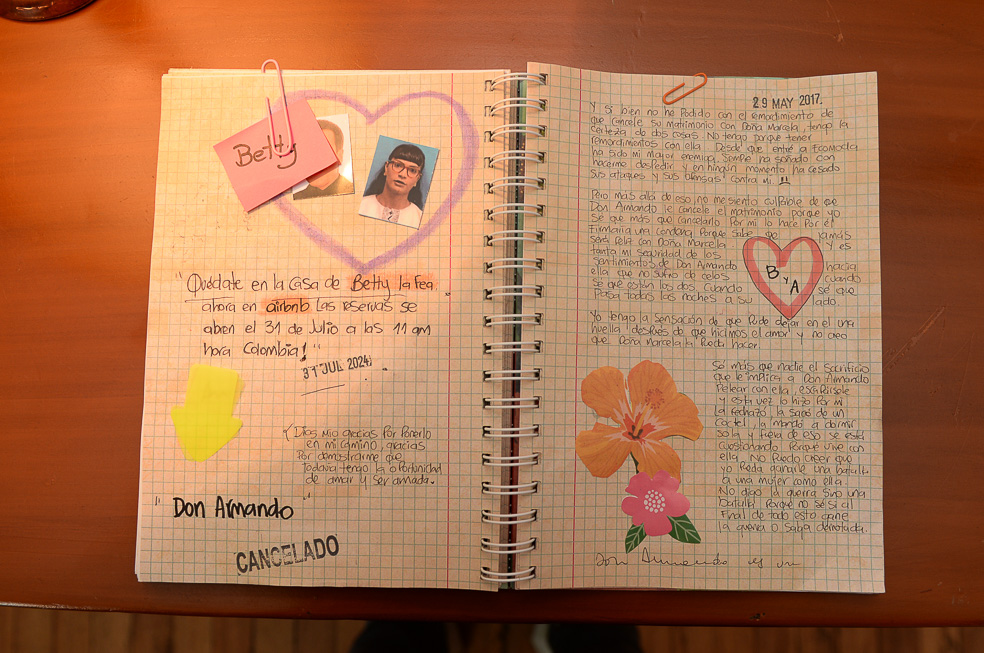 Betty
"Quédate en la casa de Betty la Fea
ahora en airbnb Las reservas se
abren el 31 de Julio a las 11 am
hora Colombia!"
31 JUL 2024
Dios mio gracias por ponerlo
en mi camino, gracias
Por demostrarme que
todavía tengo la oportunidad
de amar y ser amada.
"Don Armando"
CANCELADO
29 MAY 2017.
Y si bien no he Podido con el remordimiento de
que cancele su matrimonio con Doña Marcela, tengo la
certeza de dos cosas. No tengo porque tener
remordimientos con ella. Desde que entré a Ecomoda
ha sido mi mayor enemiga. Siempre ha soñado con
hacerme despedir y en ningún momento ha cesado
sus ataques y sus ofensas contra mi.
Pero más allá de eso, no me siento culpable de que
Don Armando le cancele el matrimonio porque yo
sé que más que cancelarlo Por mi lo hace Por el
Firmaria una condena Porque sabe que jamás
será feliz con Doña Marcela Y es
tanta mi seguridad de los
sentimientos de Don Armando hacia
ella que no sufro de celos cuando
se que están los dos. Cuando sé que
Pasa todas las noches a su lado.
B y A
Yo tengo la sensación de que Pude dejar en el una
huella después de que hicimos el amor y no creo
que Doña Marcela la Pueda hacer
Sé más que nadie el sacrificio
que le implica a Don Armando
Pelear con ella, escapársele
y esta vez lo hizo Por mi
La rechazó, la sacó de un
coctel, la mandó a dormir
sola y fuera de eso se está
cuestionando Porque vive con
ella. No Puedo creer que
yo Pueda ganarle una batalla
a una mujer como ella.
No digo la guerra sino una
batalla Porque no sé si al
Final de todo esto gane
la guerra o salga derrotada.
Don Armando es un